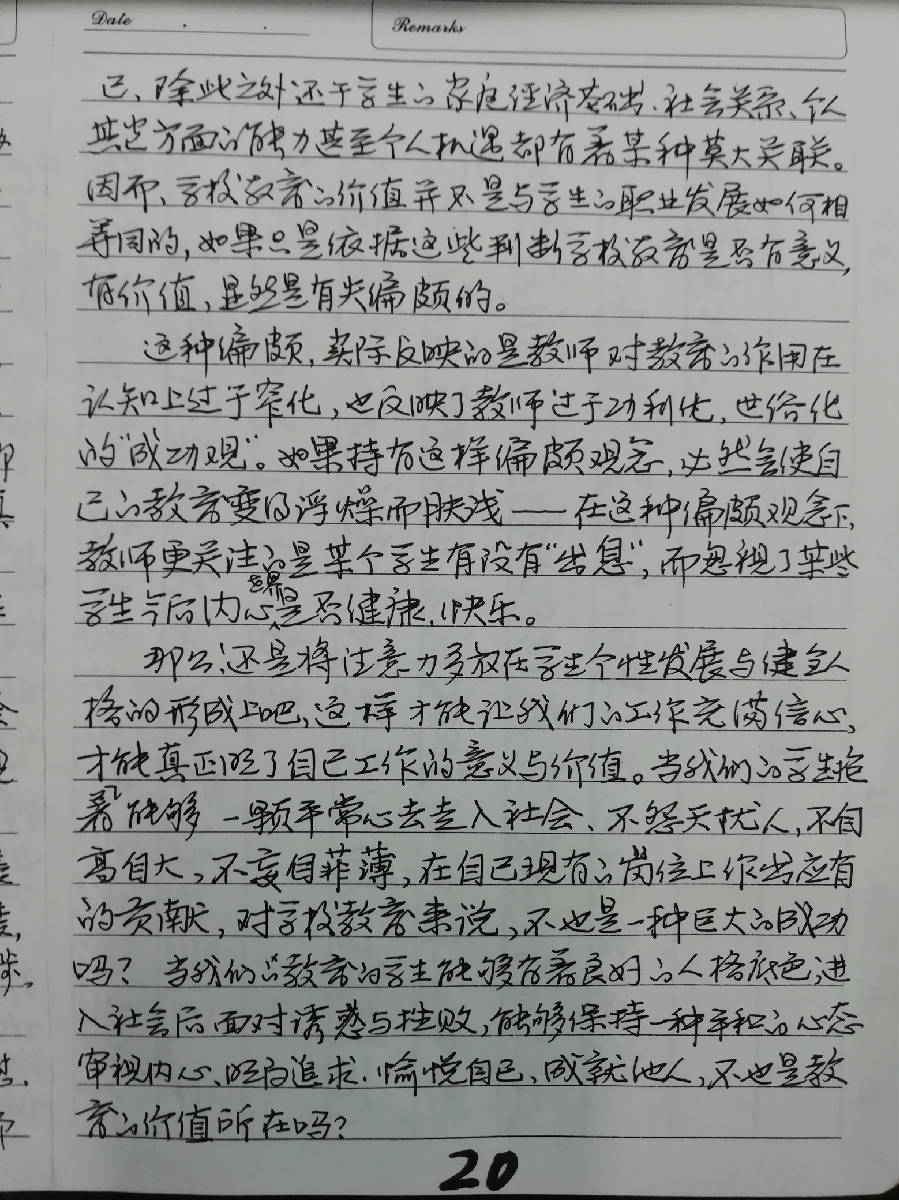 Date
Remarks
已、除此之外还于学生的家庭经济基础、社会关系、个人
其它方面的能力甚至个人机遇都有着某种莫大关联。
因而、学校教育的价值并不是与学生的职业发展如何相
等同的,如果只是依据这些判断学校教育是否有意义,
有价值,显然是有失偏颇的。
这种偏颇,实际反映的是教师对教育的作用在
认知上过于窄化,也反映了教师过于功利化,世俗化
的“成功观”。如果持有这样偏颇观念,必然会使自
己的教育变得浮燥而肤浅——在这种偏颇观念下,
教师更关注的是某个学生有没有“出息”,而忽视了某些
学生今后内心是否健康、快乐。
那么还是将注意力多放在学生个性发展与健全人
格的形成上吧,这样才能让我们的工作充满信心,
才能真正明了自己工作的意义与价值。当我们的学生抱
着能够一颗平常心去走入社会、不怨天忧人,不自
高自大,不妄自菲薄,在自己现有的岗位上作出应有
的贡献,对学校教育来说,不也是一种巨大的成功
吗?当我们的教育的学生能够有着良好的人格底色,进
入社会后面对诱惑与挫败,能够保持一种平和的心态
审视内心、明白追求、愉悦自己、成就他人,不也是教
育的价值所在吗?
20